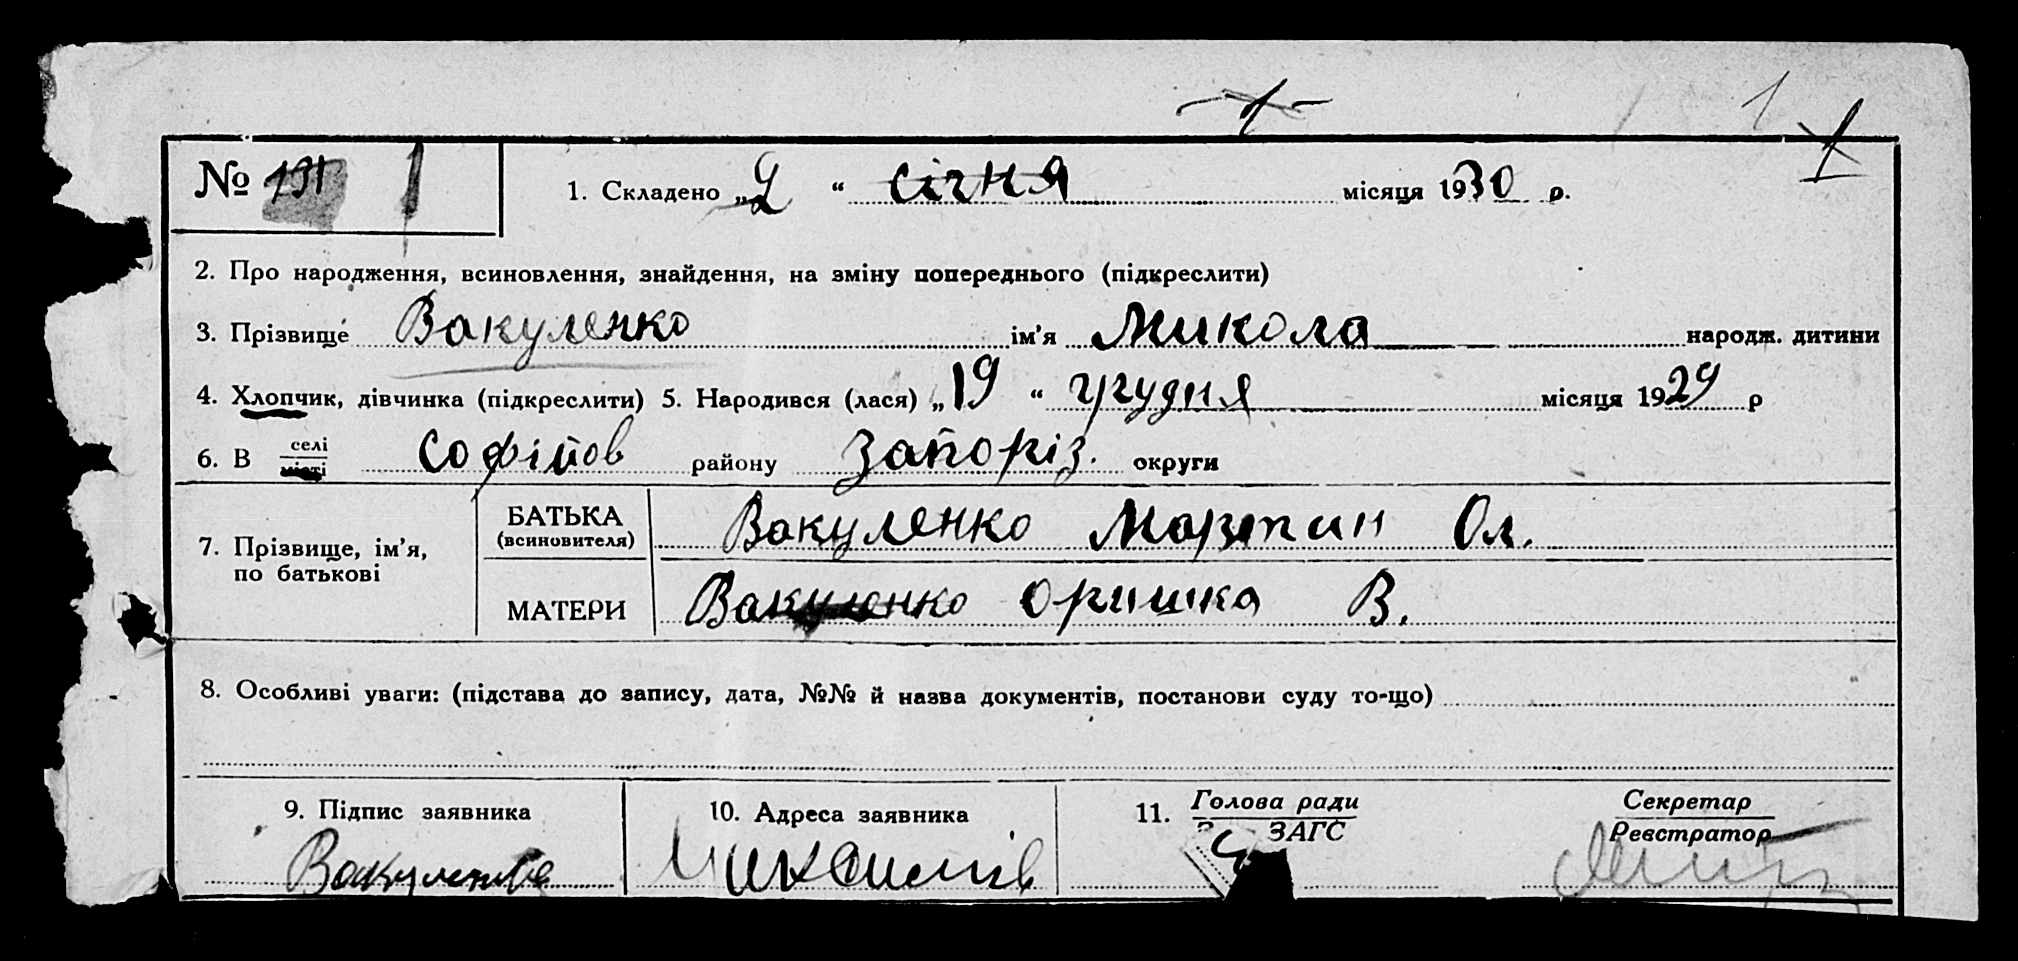 1
№ 131 1
1. Складено „2“ січня місяця 1930 р.
2. Про народження, всиновлення, знайдення, на зміну попереднього (підкреслити)
3. Прізвище Вакуленко ім'я Микола народж. дитини
4. Хлопчик, дівчинка (підкреслити) 5. Народився (лася) „19“ грудня місяця 1929 р
6. В селі місті Софіїов району Запоріз. округи
7. Прізвище, ім'я, по батькові
БАТЬКА (всиновителя) Вакуленко Мартин Ол.
МАТЕРИ Вакуленко Оришка В.
8. Особливі уваги: (підстава до запису, дата, №№ й назва документів, постанови суду то-що)
9. Підпис заявника 10. Адреса заявника 11. Голова ради ЗАГС Секретар Реєстратор
Вакуленко